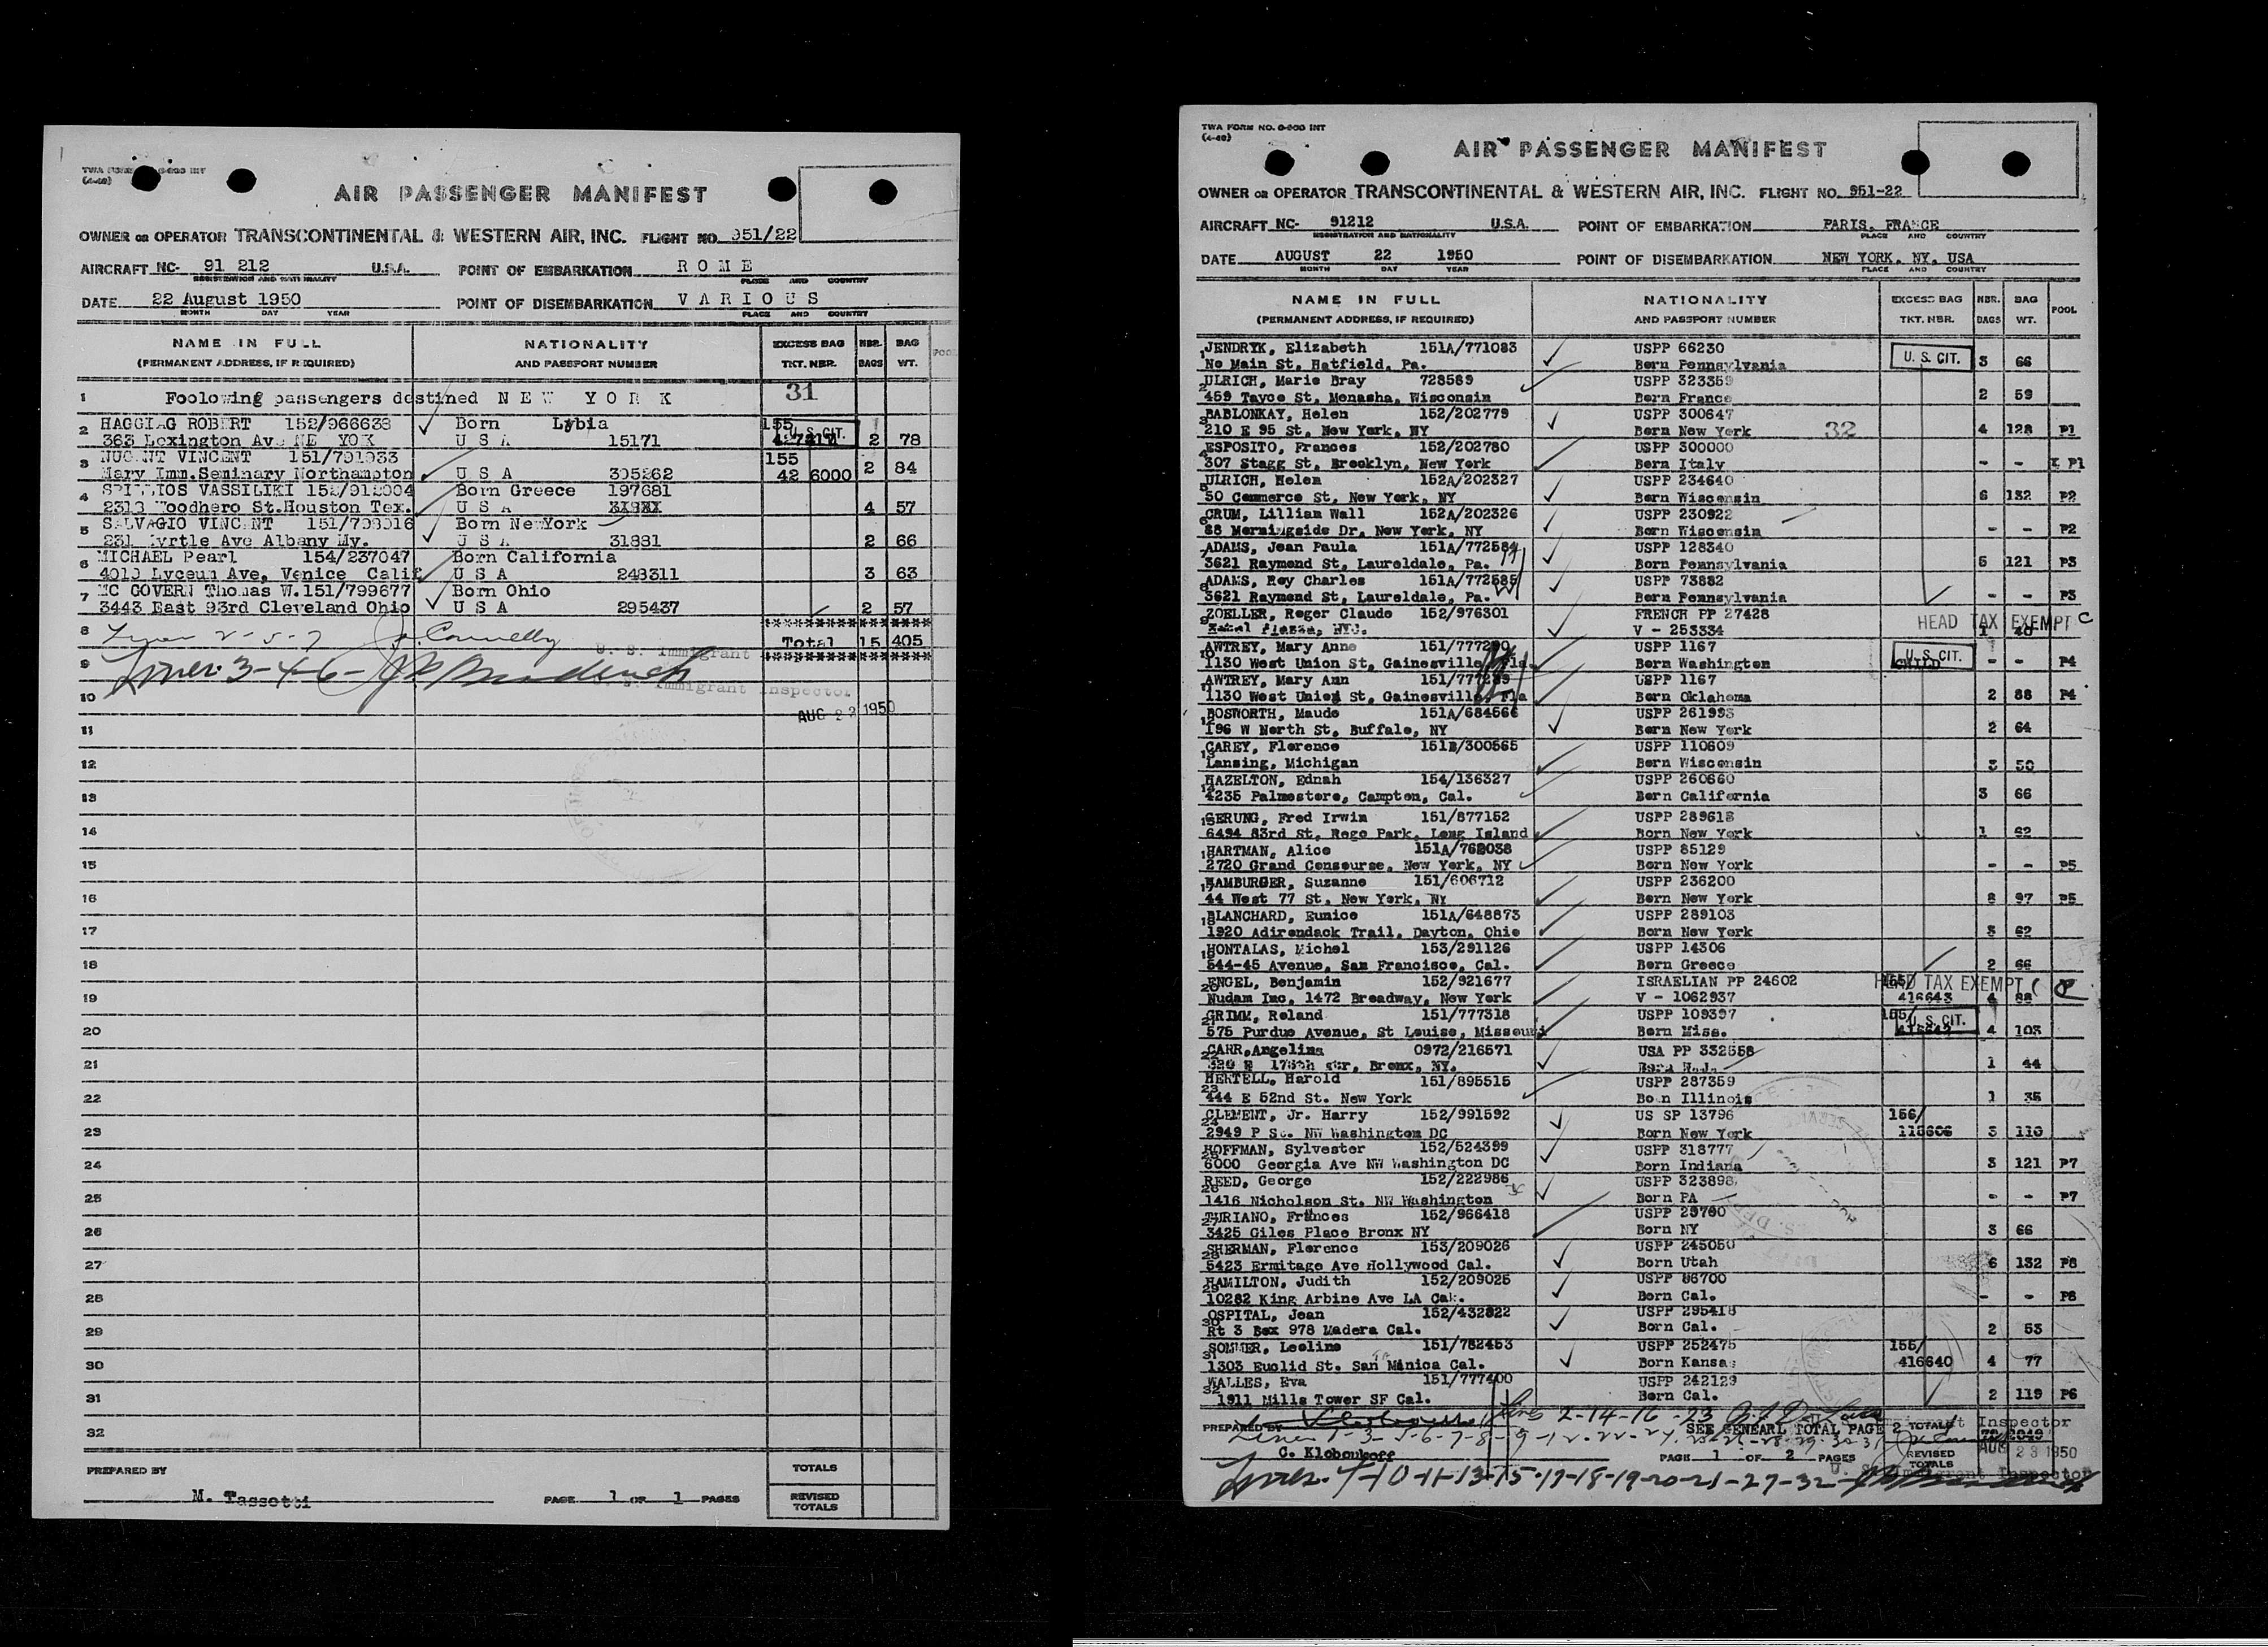 AIR PASSENGER MANIFEST
OWNER OR OPERATOR TRANSCONTINENTAL & WESTERN AIR, INC. FLIGHT NO. 951/22
AIRCRAFT NC- 91 212 U.S.A. POINT OF EMBARKATION R O M E
REGISTRATION AND NATIONALITY PLACE AND COUNTRY
DATE 22 August 1950 POINT OF DISEMBARKATION V A R I O U S
MONTH DAY YEAR PLACE AND COUNTRY
NAME IN FULL NATIONALITY EXCESS BAG NBR. BAG
(PERMANENT ADDRESS, IF REQUIRED) AND PASSPORT NUMBER TKT. NBR. BAGS WT. POOL
31
1 Foolowing passengers destined N E W Y O R K
2 HAGGIAG ROBERT 152/966638 Born Lybia 155
363 Lexington Ave NE YOK U S A 15171 U. S. CIT. 2 78
3 NUGENT VINCENT 151/791933 155
Mary Imm.Seminary Northampton U S A 305262 42 6000 2 84
4 VASSILIKI 152/912004 Born Greece 197681
2313 Woodhero St.Houston Tex. U S A 4 57
5 SALVAGIO VINCENT 151/798016 Born NewYork
231 Myrtle Ave Albany Ny. U S A 31881 2 66
6 MICHAEL Pearl 154/237047 Born California
4010 Lyceum Ave, Venice Calif U S A 248311 3 63
7 MC GOVERN Thomas W.151/799677 Born Ohio
3443 East 93rd Cleveland Ohio U S A 295437 2 57
8 2-5-7 Connelly Total 15 405
U. S. Immigrant
9 Lines 3-4-6-
U. S. Immigrant Inspector
10 AUG 22 1950
11
12
13
14
15
16
17
18
19
20
21
22
23
24
25
26
27
28
29
30
31
32
PREPARED BY TOTALS
M. Tassetti PAGE 1 OF 1 PAGES REVISED TOTALS
TWA FORM NO. 0-900 INT
(4-49)
AIR PASSENGER MANIFEST
OWNER OR OPERATOR TRANSCONTINENTAL & WESTERN AIR, INC. FLIGHT NO. 951-22
AIRCRAFT NC- 91212 U.S.A. POINT OF EMBARKATION PARIS, FRANCE
REGISTRATION AND NATIONALITY PLACE AND COUNTRY
DATE AUGUST 22 1950 POINT OF DISEMBARKATION NEW YORK, NY, USA
MONTH DAY YEAR PLACE AND COUNTRY
NAME IN FULL NATIONALITY EXCESS BAG NBR. BAG POOL
(PERMANENT ADDRESS, IF REQUIRED) AND PASSPORT NUMBER TKT. NBR. BAGS WT.
1 JENDRYK, Elizabeth 151A/771083 USPP 66230 U. S. CIT.
No Main St, Hatfield, Pa. Born Pennsylvania 3 66
2 ULRICH, Marie Bray 728589 USPP 323359
459 Tayco St, Menasha, Wisconsin Born France 2 59
3 BABLONKAY, Helen 152/202779 USPP 300647
210 E 95 St, New York, NY Born New York 32 4 128 P1
4 ESPOSITO, Frances 152/202780 USPP 300000
307 Stagg St, Brooklyn, New York Born Italy - - P1
5 ULRICH, Helen 152A/202327 USPP 234640
50 Commerce St, New York, NY Born Wisconsin 6 132 P2
6 CRUM, Lillian Wall 152A/202326 USPP 230922
88 Morningside Dr, New York, NY Born Wisconsin - - P2
7 ADAMS, Jean Paula 151A/772584 USPP 128340
3621 Raymond St, Laureldale, Pa. Born Pennsylvania 5 121 P3
8 ADAMS, Roy Charles 151A/772585 USPP 73882
3621 Raymond St, Laureldale, Pa. Born Pennsylvania - - P3
9 ZOELLER, Roger Claude 152/976301 FRENCH PP 27428 HEAD TAX EXEMPT C
V - 253334 1 40
10 AWTREY, Mary Anne 151/777290 USPP 1167 U. S. CIT.
1130 West Union St, Gainesville, Fla. Born Washington CHILD - - P4
11 AWTREY, Mary Ann 151/777289 USPP 1167
1130 West Union St, Gainesville, Fla Born Oklahoma 2 88 P4
12 BOSWORTH, Maude 151A/684566 USPP 261993
196 W North St, Buffalo, NY Born New York 2 64
13 CAREY, Florence 151B/300565 USPP 110609
Lansing, Michigan Born Wisconsin 3 50
14 HAZELTON, Ednah 154/136327 USPP 260660
4235 Palmestore, Campton, Cal. Born California 3 66
15 GERUNG, Fred Irwin 151/877152 USPP 289618
6494 83rd St, Rego Park, Long Island Born New York 1 62
16 HARTMAN, Alice 151A/762038 USPP 85129
2720 Grand Concourse, New York, NY Born New York - - P5
17 HAMBURGER, Suzanne 151/606712 USPP 236200
44 West 77 St, New York, NY Born New York 8 97 P5
18 BLANCHARD, Eunice 151A/648873 USPP 289103
1920 Adirondack Trail, Dayton, Ohio Born New York 3 62
19 HONTALAS, Michel 153/291126 USPP 14306
544-45 Avenue, San Francisco, Cal. Born Greece 2 66
20 ENGEL, Benjamin 152/921677 ISRAELIAN PP 24602 155/ HEAD TAX EXEMPT
Nudam Inc, 1472 Broadway, New York V - 1062937 416643 4 88
21 GRIMM, Roland 151/777318 USPP 109397 155/ U. S. CIT.
575 Purdue Avenue, St Louise, Missouri Born Miss. 4 103
22 CARR,Angelina 0972/216571 USA PP 332558
Bronx, NY. Born N.J. 1 44
23 HERTELL, Harold 151/895515 USPP 287359
444 E 52nd St. New York Bo n Illinois 1 35
24 CLEMENT, Jr. Harry 152/991592 US SP 13796 156/
2949 P St. NW Washington DC Born New York 118606 3 110
25 HOFFMAN, Sylvester 152/524399 USPP 318777
6000 Georgia Ave NW Washington DC Born Indiana 3 121 P7
26 REED, George 152/222986 USPP 323898
1416 Nicholson St. NW Washington Born PA - - P7
27 TURIANO, Frances 152/966418 USPP 29760
3425 Giles Place Bronx NY Born NY 3 66
28 SHERMAN, Florence 153/209026 USPP 245050
5423 Ermitage Ave Hollywood Cal. Born Utah 6 132 P8
29 HAMILTON, Judith 152/209025 USPP 86700
10282 King Arbine Ave LA Cal. Born Cal. - - P8
30 OSPITAL, Jean 152/432822 USPP 295418
Rt 3 Box 978 Madera Cal. Born Cal. 2 53
31 SOMMER, Leoline 151/782453 USPP 252475 155/
1303 Euclid St. San Monica Cal. Born Kansas 416640 4 77
32 WALLES, Eva 151/777400 USPP 242129
1911 Mills Tower SF Cal. Born Cal. 2 119 P6
Lines 2-14-16-23 Immigrant Inspector
PREPARED BY SEE GENEARL TOTAL PAGE 2 TOTALS
C. Kloboukoff PAGE 1 OF 2 PAGES REVISED TOTALS AUG 23 1950
U. S. Immigrant Inspector
Lines 4-10-11-13-15-17-18-19-20-21-27-32-